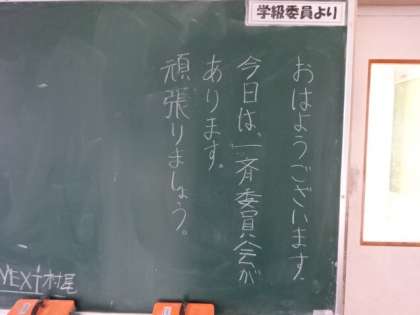 学級委員より
おはようございます.
今日は、一斉委員会が
あります.
頑張りましょう。
NEXT村尾